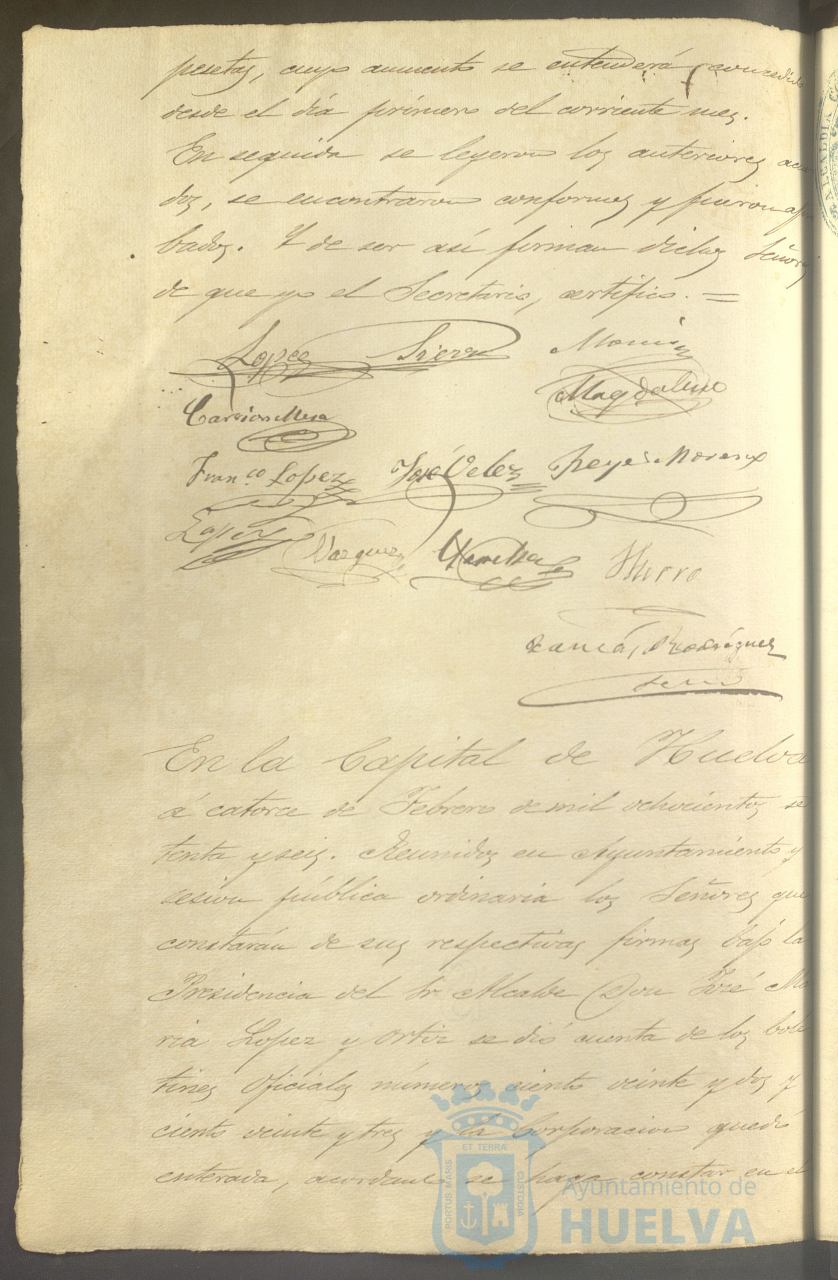 pesetas, cuyo aumento se entenderá concedido
desde el día primero del corriente mes.
En seguida se leyeron los anteriores acu
dos, se encontraron conformes y fueron apro
bados. Y de ser así firman dichos Señores
de que yo el Secretario, certifico. =
Lopez Sierra
Magdaleno
Garcia Mesa
Fran.co Lopez José Velez Reyes Moreno
Lopez Vazquez
Rodriguez
En la Capital de Huelva
á catorce de Febrero de mil ochocientos se
tenta y seis. Reunidos en Ayuntamiento y
sesion pública ordinaria los Señores que
constarán de sus respectivas firmas bajo la
Presidencia del Sr Alcalde Don José Ma
ria Lopez y Ortiz se dió cuenta de los bole
tines oficiales números ciento veinte y dos y
ciento veinte y tres y la Corporacion quedó
enterada, acordando se haga constar en el
ALCALDIA
ET TERRA
PORTUS MARIS
CUSTODIA
Ayuntamiento de
HUELVA